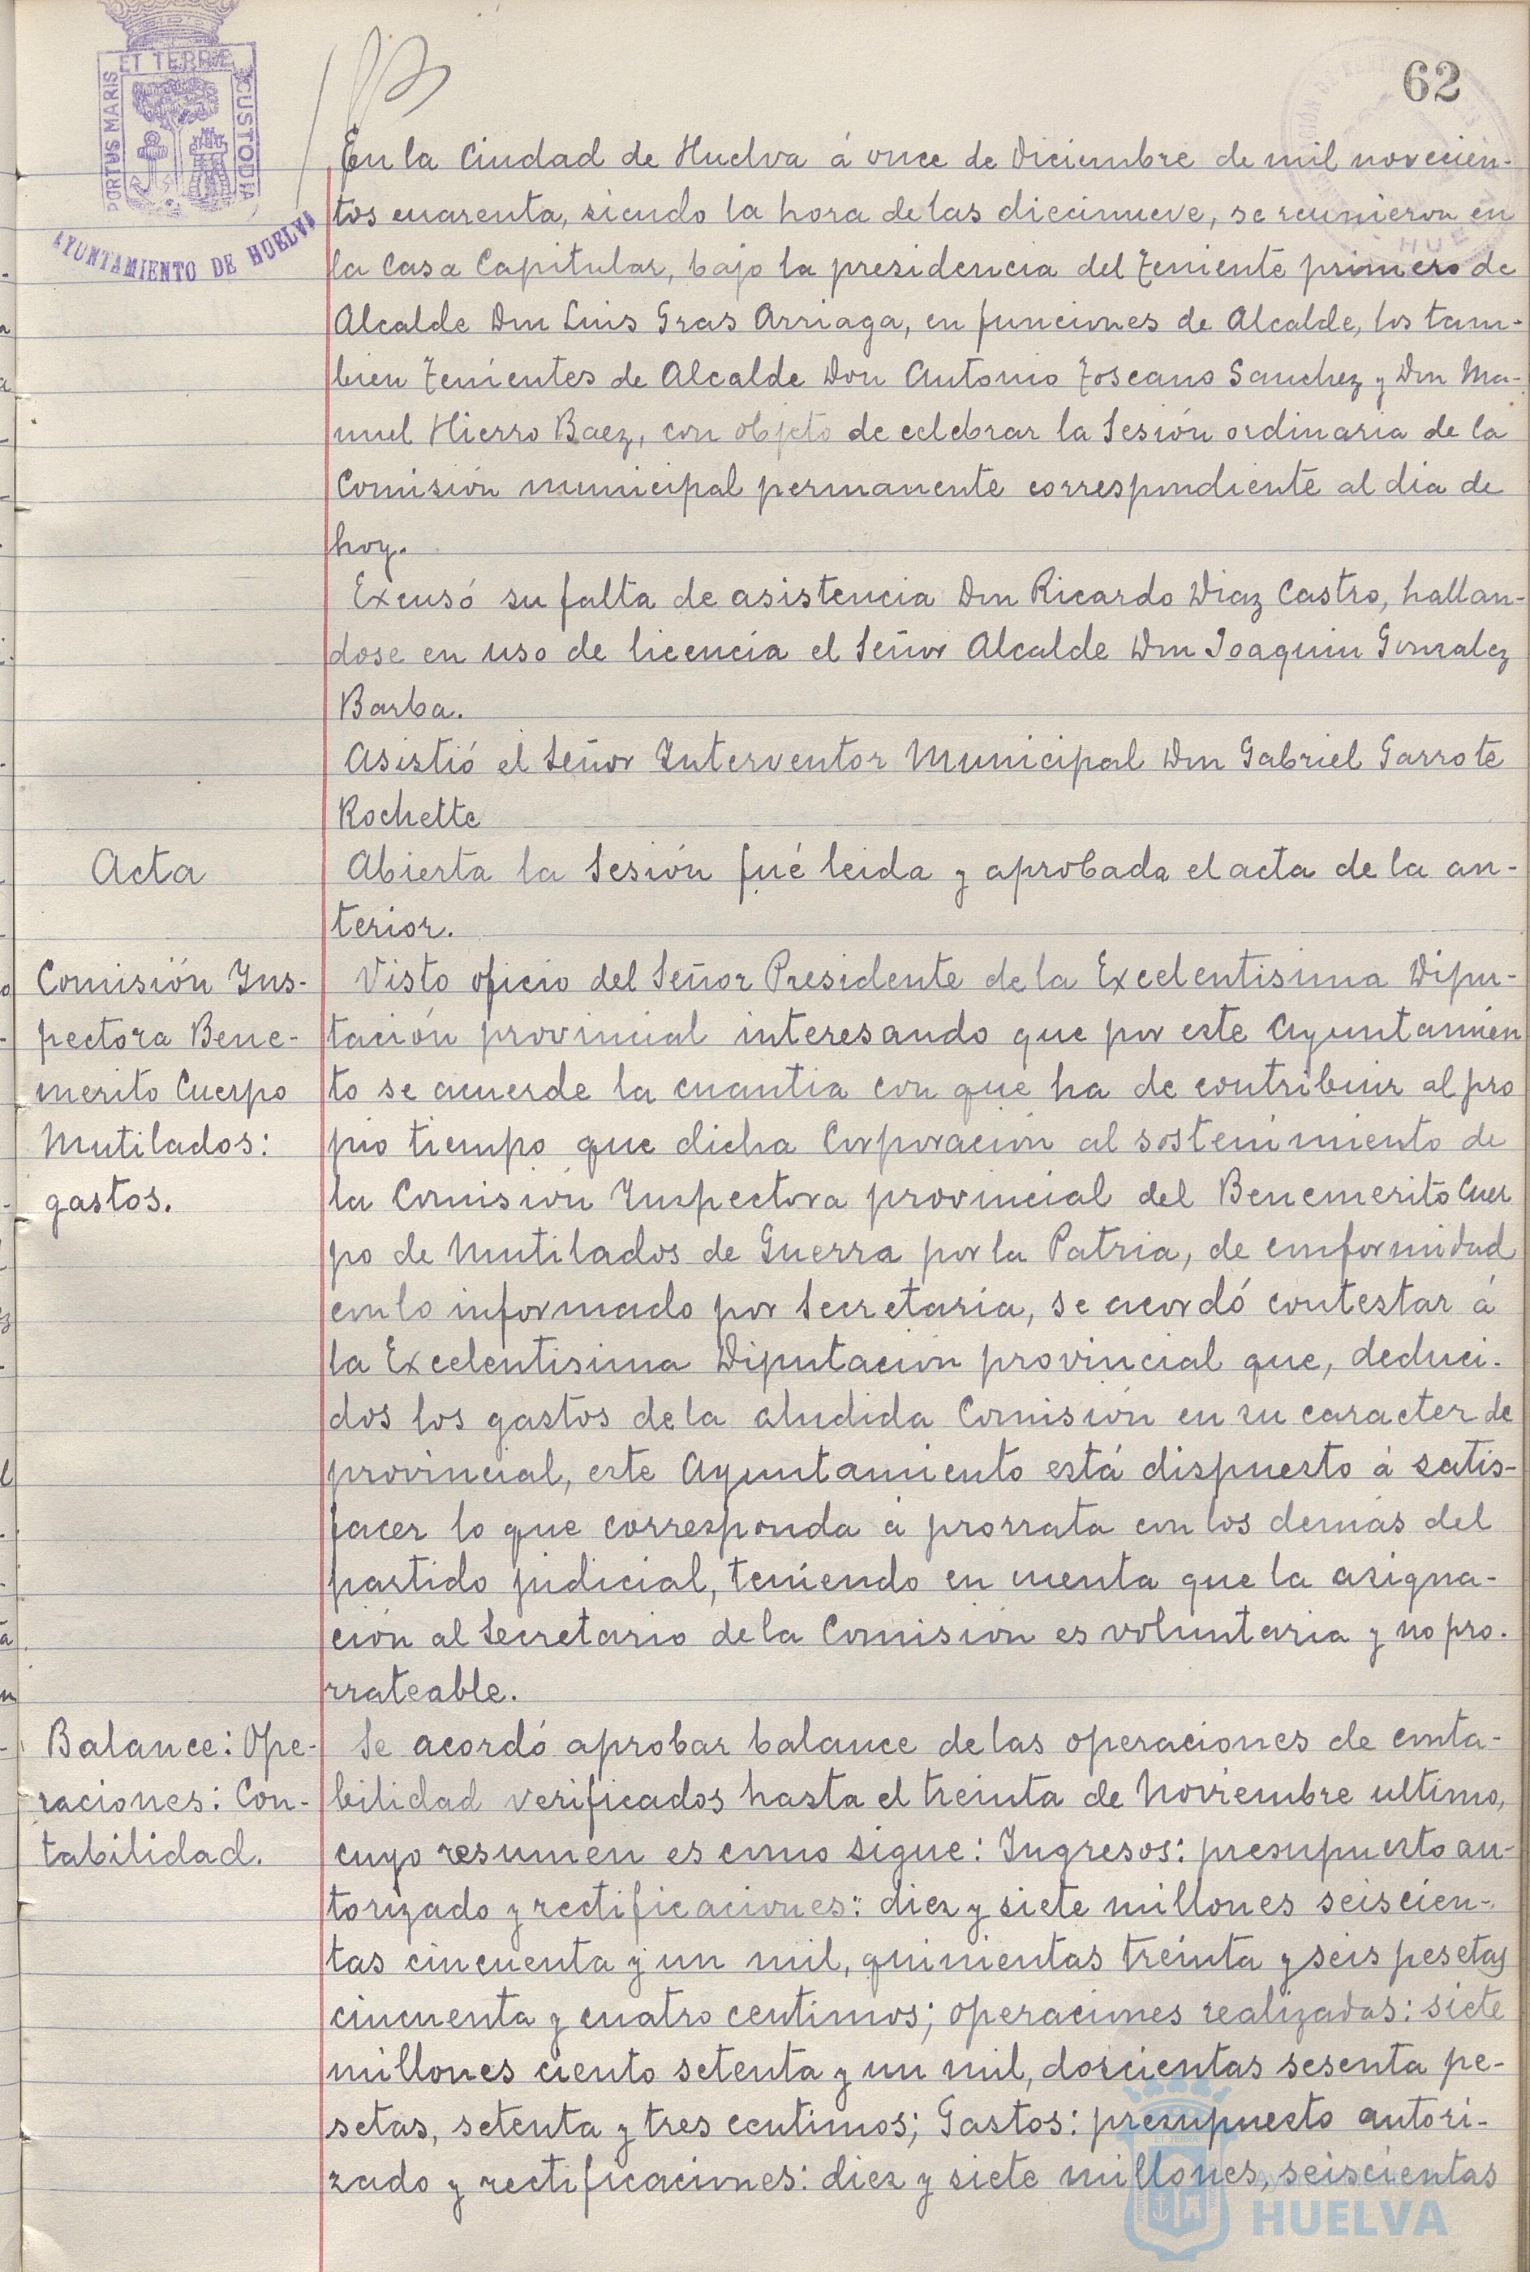 62
ET TERRÆ
PORTUS MARIS
CUSTODIA
AYUNTAMIENTO DE HUELVA
En la Ciudad de Huelva á once de Diciembre de mil novecien-
tos cuarenta, siendo la hora de las diecinueve, se reunieron en
la Casa Capitular, bajo la presidencia del Teniente primero de
Alcalde Don Luis Gras Arriaga, en funciones de Alcalde, los tam-
bien Tenientes de Alcalde Don Antonio Toscano Sanchez y Don Ma-
nuel Hierro Baez, con objeto de celebrar la Sesión ordinaria de la
Comisión municipal permanente correspondiente al dia de
hoy.
Excusó su falta de asistencia Don Ricardo Diaz Castro, hallan-
dose en uso de licencia el Señor Alcalde Don Joaquin Gonzalez
Barba.
Asistió el Señor Interventor Municipal Don Gabriel Garrote
Rochette
Acta
Abierta la Sesión fué leida y aprobada el acta de la an-
terior.
Comisión Ins-
pectora Bene-
merito Cuerpo
Mutilados:
gastos.
Visto oficio del Señor Presidente de la Excelentisima Dipu-
tación provincial interesando que por este Ayuntamien
to se acuerde la cuantia con que ha de contribuir al pro
pio tiempo que dicha Corporación al sostenimiento de
la Comisión Inspectora provincial del Benemerito Cuer
po de Mutilados de Guerra por la Patria, de conformidad
con lo informado por Secretaría, se acordó contestar á
la Excelentisima Diputación provincial que, deduci-
dos los gastos de la aludida Comisión en su caracter de
provincial, este Ayuntamiento está dispuesto á satis-
facer lo que corresponda á prorrata con los demás del
partido judicial, teniendo en cuenta que la asigna-
ción al Secretario de la Comisión es voluntaria y no pro-
rrateable.
Balance: Ope-
raciones: Con-
tabilidad.
Se acordó aprobar balance de las operaciones de conta-
bilidad verificados hasta el treinta de Noviembre ultimo,
cuyo resumen es como sigue: Ingresos: presupuesto au-
torizado y rectificaciones: diez y siete millones seiscien-
tas cincuenta y un mil, quinientas treinta y seis pesetas
cincuenta y cuatro centimos; operaciones realizadas: siete
millones ciento setenta y un mil, doscientas sesenta pe-
setas, setenta y tres centimos; Gastos: presupuesto autori-
zado y rectificaciones: diez y siete millones, seiscientas
HUELVA